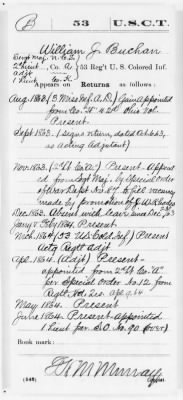 B 53 U.S.C.T.
William J. Buchan
Sergt Maj. N.C.S.
2 Lieut, Co. A
Adjt
1 Lieut Co. K
53 Reg't U.S. Colored Inf.
Appears on Returns as follows:
Aug. 1863 (3 Miss Inf. A.D.) Gain appointed
from Co. "H" 42d Ohio Vol.
Present
Sept. 1863. (signs return, dated Oct. 5, 63,
as acting Adjutant)
Nov. 1863. (2d Lt Co "A") Present. Appoin-
ted from Sergt Maj. by Special Order
of War Dept No. 89. to fill vacancy
made by promotion of J.C. W.
Dec. 1863. Absent with leave since Dec. 23
Jany & Feb 1864. Present
Mch. 1864. (53 U.S. Cold Inf) Present
Actg Regtl Adjt
Apr. 1864. (Adjt) Present—
appointed from 2d Lt Co. "A"
per Special Order No. 12 from
Regtl Hd. Qrs. Apr 9. 64
May 1864. Present
June 1864. Present appointed
1 Lieut per S.O. No. 90 (over)
Book mark:
Murray
(546) Copyist.